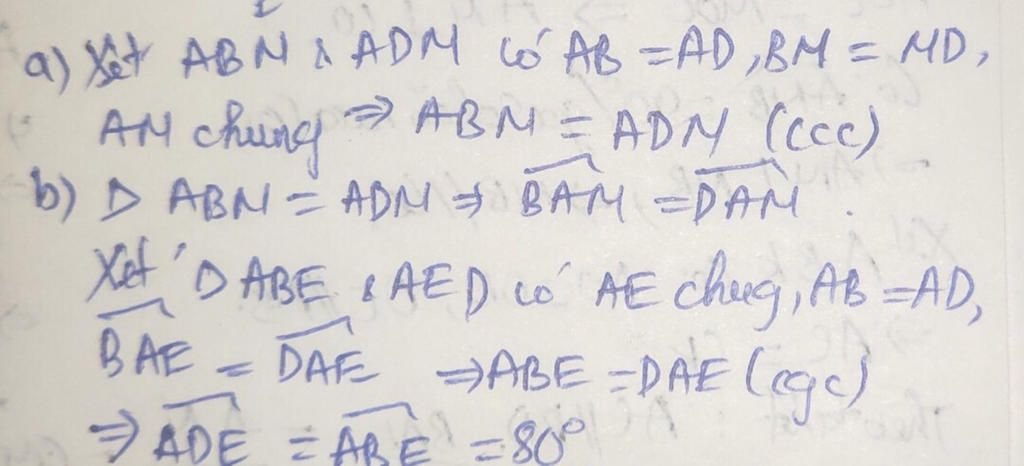 a) Xét ABM & ADM có AB = AD, BM = MD,
AM chung ⇒ ABM = ADM (ccc)
b) Δ ABM = ADM ⇒ \widehat{BAM} = \widehat{DAM}.
Xét Δ ABE & AED có AE chug, AB = AD,
\widehat{BAE} = \widehat{DAE} ⇒ ABE = DAE (cgc)
⇒ \widehat{ADE} = \widehat{ABE} = 80°